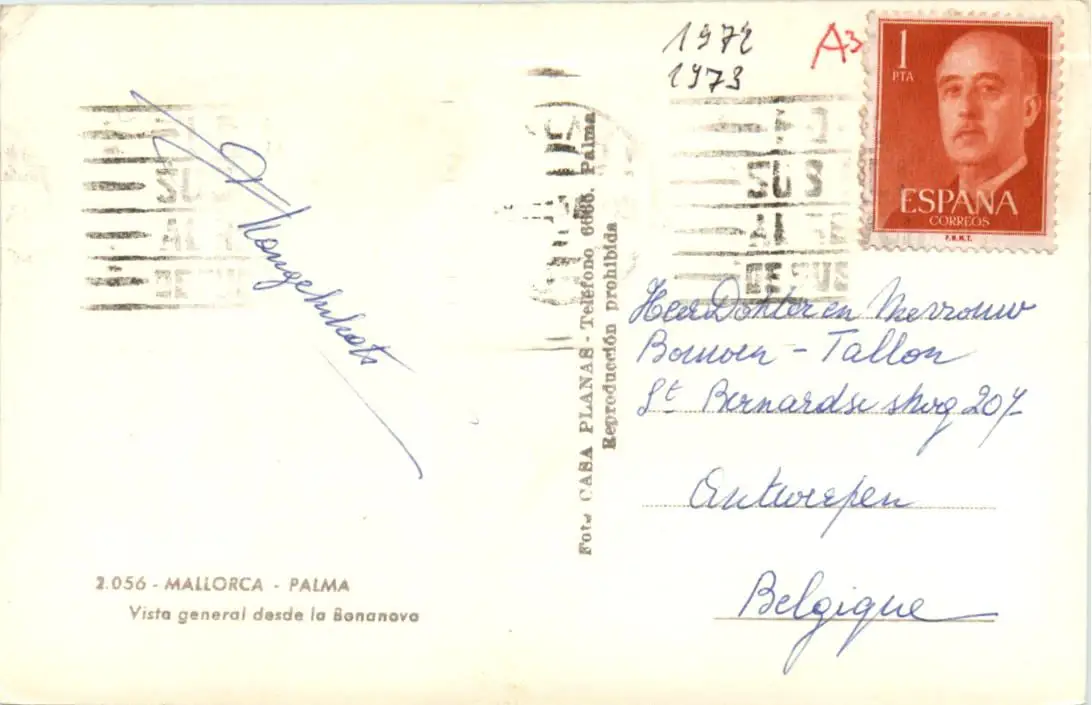 1972
1973
A3
1
PTA
ESPAÑA
CORREOS
F.N.M.T.
Foto CASA PLANAS - Teléfono 6666. Palma
Reproducción prohibida
Heer Dokter en Mevrouw
- Tallon
St Bernardse stwg 207
Antwerpen
Belgique
2.056 - MALLORCA - PALMA
Vista general desde la Bonanova